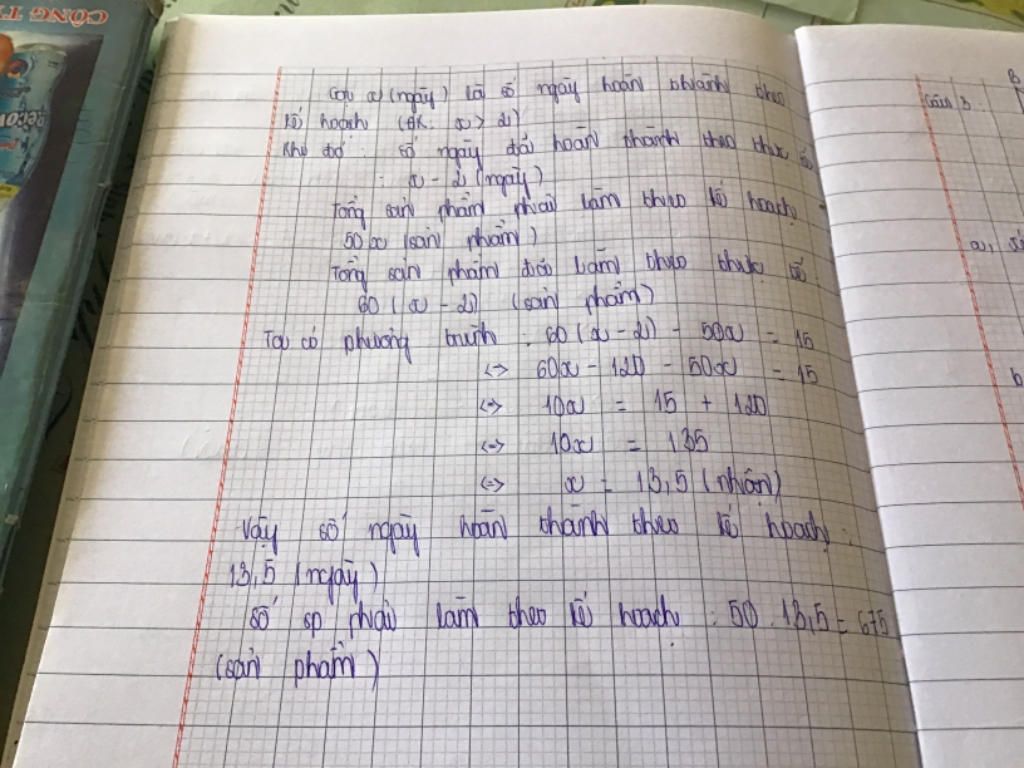 CÔNG TY
Gọi x (ngày) là số ngày hoàn thành theo
kế hoạch (ĐK: x > 2)
Khi đó: số ngày đã hoàn thành theo thực tế
: x - 2 (ngày)
Tổng sản phẩm phải làm theo kế hoạch
50x (sản phẩm)
Tổng sản phẩm đã làm theo thực tế
60 (x - 2) (sản phẩm)
Ta có phương trình: 60 (x - 2) - 50x = 15
<=> 60x - 120 - 50x = 15
<=> 10x = 15 + 120
<=> 10x = 135
<=> x = 13,5 (nhận)
Vậy số ngày hoàn thành theo kế hoạch:
13,5 (ngày)
số sp phải làm theo kế hoạch: 50 . 13,5 = 675
(sản phẩm)
B
Câu 3
a,
b